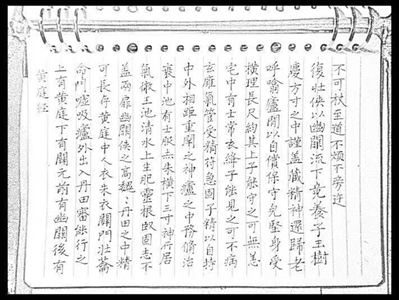 黄庭经
上有黄庭下有關元前有幽闕後有
命門噓吸廬外出入丹田審能行之
可長存黄庭中人衣朱衣關門壯籥
盖兩扉幽闕俠之高巍巍丹田之中精
氣微玉池清水上生肥靈根堅固志不
衰中池有士服赤朱橫下三寸神所居
中外相距重閉之神廬之中務脩治
玄膺氣管受精符急固子精以自持
宅中有士常衣絳子能見之可不病
橫理長尺約其上子能守之可無恙
呼噏廬間以自償保守完堅身受
慶方寸之中謹蓋藏精神還歸老
復壯俠以幽闕流下竟養子玉樹
不可杖至道不煩不旁迕